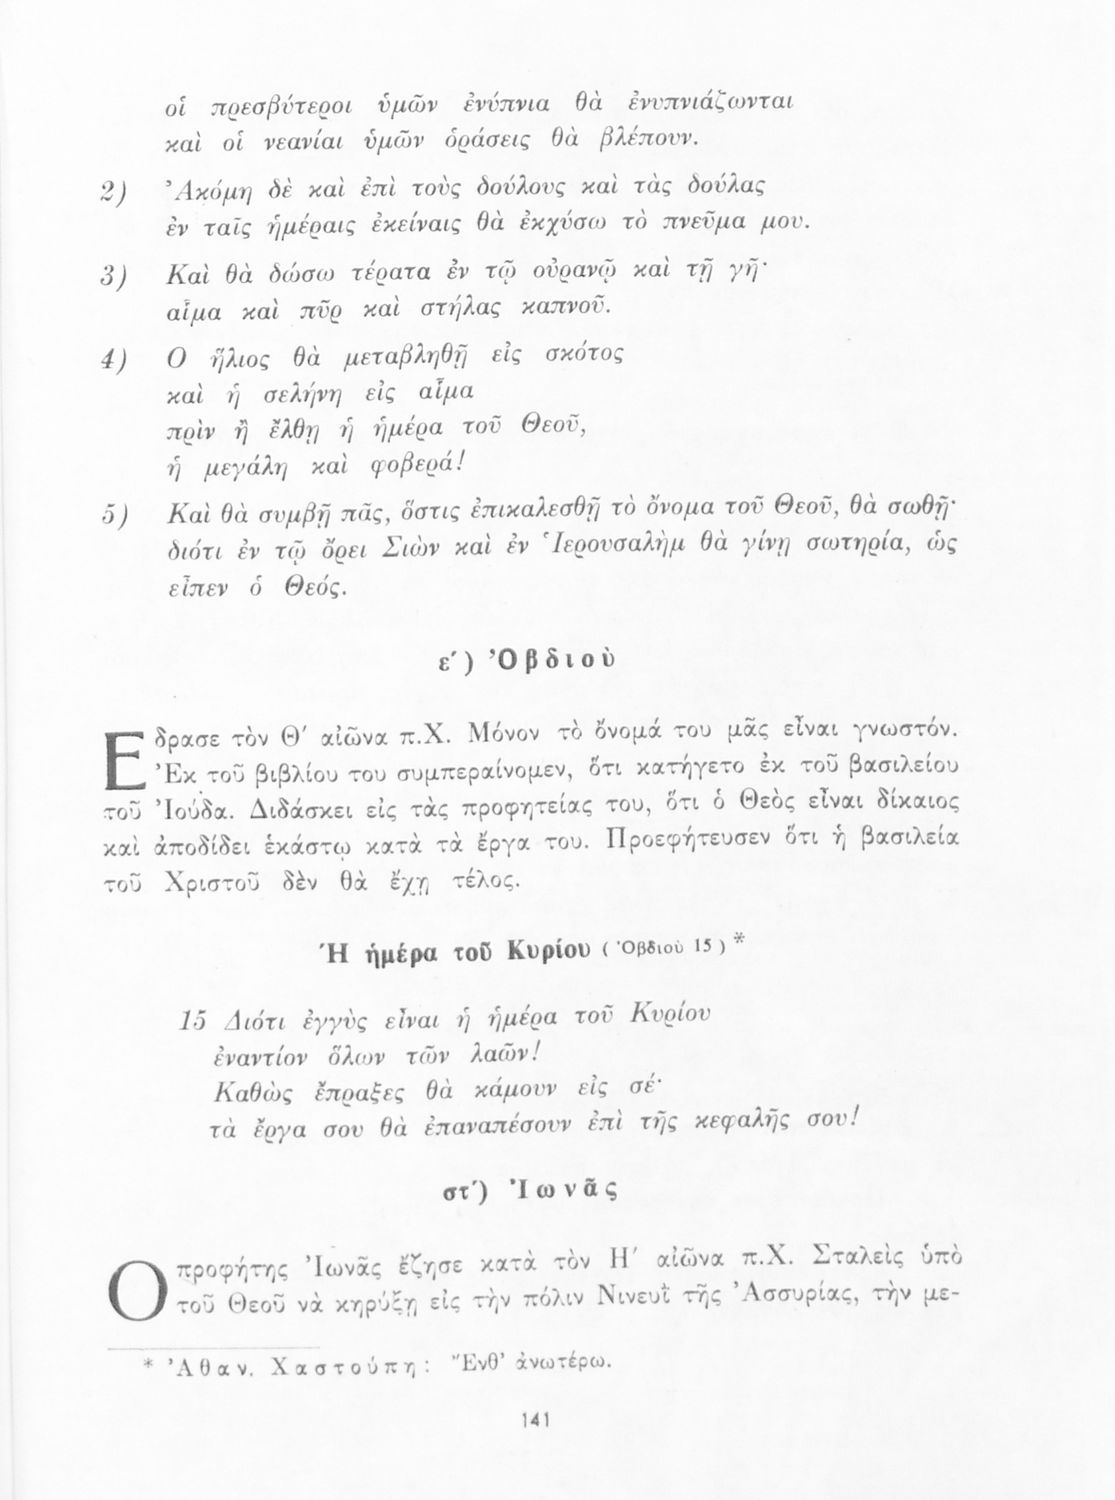 οἱ πρεσβύτεροι ὑμῶν ἐνύπνια θὰ ἐνυπνιάζωνται
καὶ οἱ νεανίαι ὑμῶν ὁράσεις θὰ βλέπουν.
2) Ἀκόμη δὲ καὶ ἐπὶ τοὺς δούλους καὶ τὰς δούλας
ἐν ταῖς ἡμέραις ἐκείναις θὰ ἐκχύσω τὸ πνεῦμα μου.
3) Καὶ θὰ δώσω τέρατα ἐν τῷ οὐρανῷ καὶ τῇ γῇ·
αἷμα καὶ πῦρ καὶ στήλας καπνοῦ.
4) Ο ἥλιος θὰ μεταβληθῇ εἰς σκότος
καὶ ἡ σελήνη εἰς αἷμα
πρὶν ἢ ἔλθῃ ἡ ἡμέρα τοῦ Θεοῦ,
ἡ μεγάλη καὶ φοβερά!
5) Καὶ θὰ συμβῇ πᾶς, ὅστις ἐπικαλεσθῇ τὸ ὄνομα τοῦ Θεοῦ, θὰ σωθῇ·
διότι ἐν τῷ ὄρει Σιὼν καὶ ἐν Ἱερουσαλὴμ θὰ γίνῃ σωτηρία, ὡς
εἶπεν ὁ Θεός.
ε΄) Ὀβδιοὺ
Εδρασε τὸν Θ΄ αἰῶνα π.Χ. Μόνον τὸ ὄνομά του μᾶς εἶναι γνωστόν.
Ἐκ τοῦ βιβλίου του συμπεραίνομεν, ὅτι κατήγετο ἐκ τοῦ βασιλείου
τοῦ Ἰούδα. Διδάσκει εἰς τὰς προφητείας του, ὅτι ὁ Θεὸς εἶναι δίκαιος
καὶ ἀποδίδει ἑκάστῳ κατὰ τὰ ἔργα του. Προεφήτευσεν ὅτι ἡ βασιλεία
τοῦ Χριστοῦ δὲν θὰ ἔχῃ τέλος.
Ἡ ἡμέρα τοῦ Κυρίου (Ὀβδιοὺ 15)*
15 Διότι ἐγγὺς εἶναι ἡ ἡμέρα τοῦ Κυρίου
ἐναντίον ὅλων τῶν λαῶν!
Καθὼς ἔπραξες θὰ κάμουν εἰς σέ·
τὰ ἔργα σου θὰ ἐπαναπέσουν ἐπὶ τῆς κεφαλῆς σου!
στ΄) Ἰωνᾶς
Ο προφήτης Ἰωνᾶς ἔζησε κατὰ τὸν Η΄ αἰῶνα π.Χ. Σταλεὶς ὑπὸ
τοῦ Θεοῦ νὰ κηρύξῃ εἰς τὴν πόλιν Νινευῒ τῆς Ἀσσυρίας, τὴν με-
* Ἀθαν. Χαστούπη: Ἔνθ' ἀνωτέρω.
141